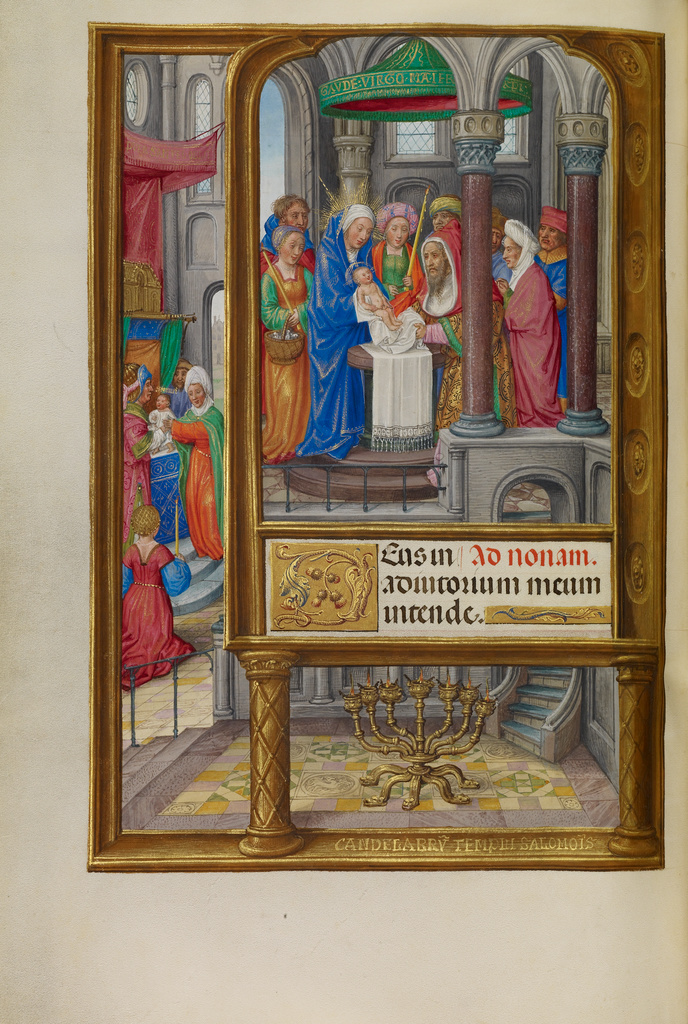 GAVDE·VIRGO·MATER
Eus in Ad nonam.
adiutorium meum
intende.
CANDELABRV̄ TEMPLI SALOMOĪS